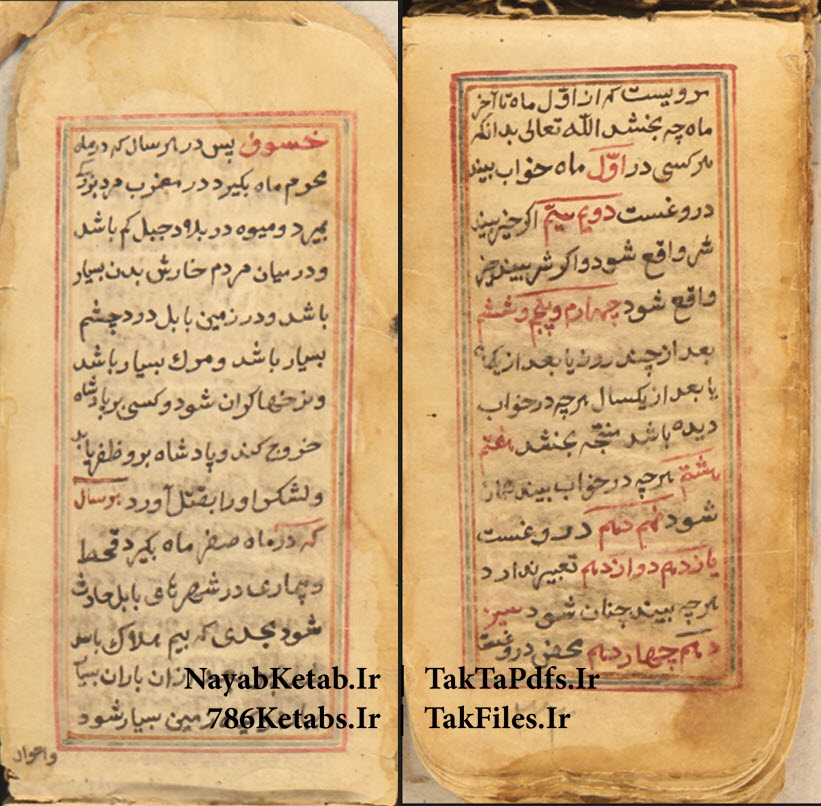 مرویست که از اوّل ماه تا آخر
ماه چه بخشد الله تعالی بدانکه
هرکسی در اوّل ماه خواب بیند
دروغست دویم سیّم اکر خیر بیند
شر واقع شود و اکر شر بیند خیر
واقع شود چهارم و پنجم و ششم
بعد از چند روز یا بعد از یکماه
یا بعد از یکسال هرچه در خواب
دیده باشد نتیجه بخشد هفتم
هشتم هرچه در خواب بیند همان
شود نهم دهم دروغست
یازدهم دوازدهم تعبیر ندارد
هرچه بیند چنان شود سیز
دهم چهاردهم محض دروغست
خسوف پس در هر سال که در ماه
محرم ماه بکیرد در مغرب مرد بزرک
بمیرد و میوه در بلاد جبل کم باشد
و در میان مردم خارش بدن بسیار
باشد و در زمین بابل درد چشم
بسیار باشد و مرک بسیار باشد
و نرخها کران شود و کسی بر پادشاه
خروج کند و پادشاه برو ظفر یابد
و لشکر او را بقتل آورد هر سال
که در ماه صفر ماه بکیرد قحط
و بیماری در شهرهای بابل حادث
شود بحدی که بیم هلاک باشد
ازان باران بسیار
زمین بسیار شود
واحوال
NayabKetab.Ir | TakTaPdfs.Ir
786Ketabs.Ir | TakFiles.Ir